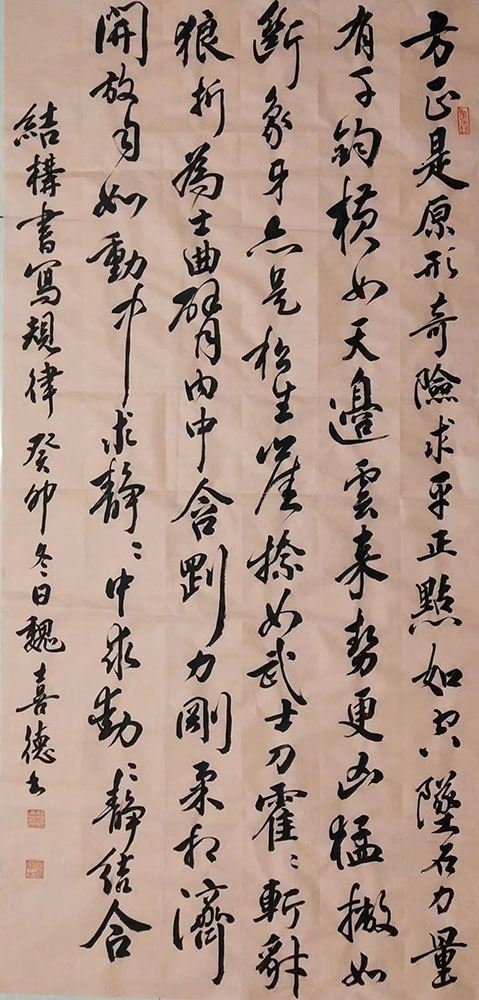 方正是原形奇險求平正點如空墜石力量
有千鈞橫如天邊雲来勢更凶猛撇如
斷象牙亦是松生崖捺如武士刀霍〻斬豺
狼折為士曲臂内中含剛力剛柔相濟
開放自如動中求靜〻中求動〻靜結合
結構書寫規律癸卯冬日魏喜德书